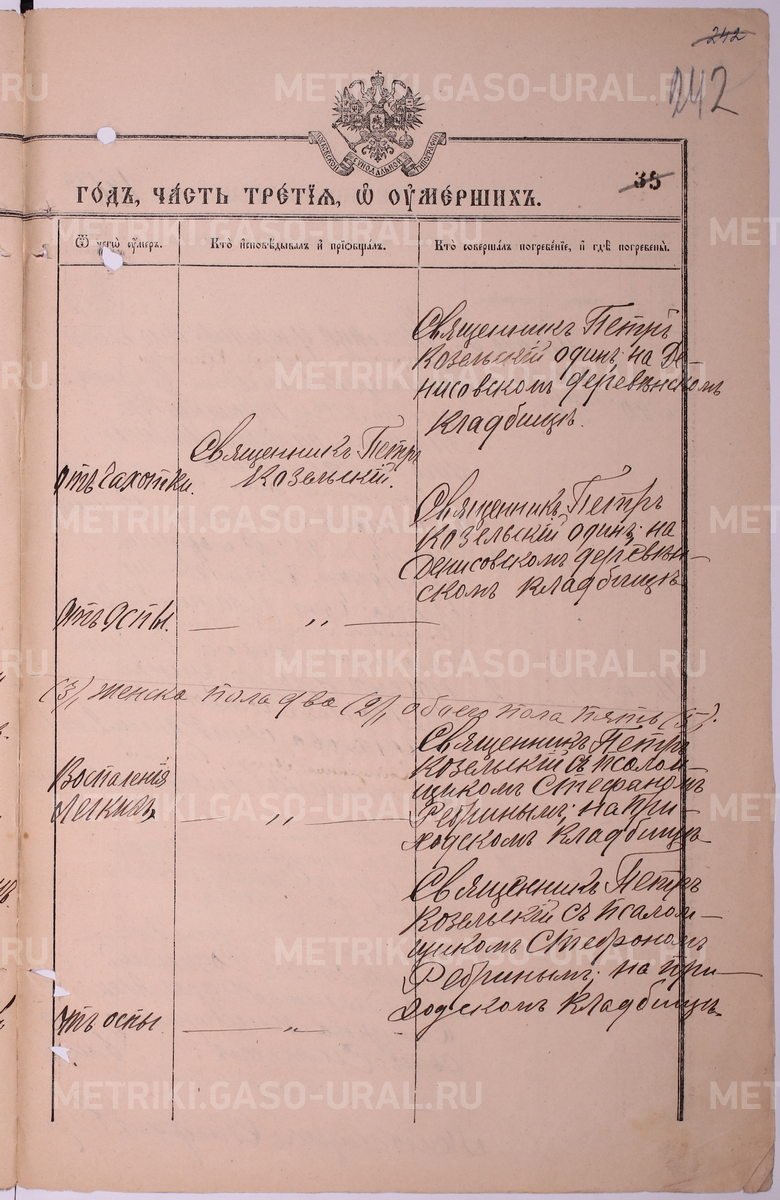 242
242
МОСКОВСКОЙ СѴНОДАЛЬНОЙ ТИПОГРАФІИ
35
ГО́ДЪ, ЧА́СТЬ ТРЕ́ТІѦ, Ѡ҆ ОУ҆МЕ́РШИХЪ.
Ѿ чегѡ̀ оу҆́меръ.
Кто̀ и҆сповѣ́дывалъ и҆ прїѡбща́лъ.
Кто̀ соверша́лъ погребе́нїе, и҆ гдѣ̀ погребены̀.
Священникъ Петръ
Козельскій одинъ; на Де-
нисовскомъ деревенскомъ
кладбищѣ.
отъ чахотки.
Священникъ Петръ
Козельскій.
Священникъ Петръ
Козельскій одинъ; на
Денисовскомъ деревен-
скомъ кладбищѣ
отъ оспы. — „ —
(3), женска пола два (2), обоего пола пять (5).
Священникъ Петръ
Козельскій съ псалом-
щикомъ Стефаномъ
Ребринымъ; на при-
ходскомъ кладбищѣ
Воспаленія
легкихъ — „ —
Священникъ Петръ
Козельскій съ псалом-
щикомъ Стефаномъ
Ребринымъ; на при-
ходскомъ кладбищѣ.
отъ оспы — „ —
METRIKI.GASO-URAL.RU